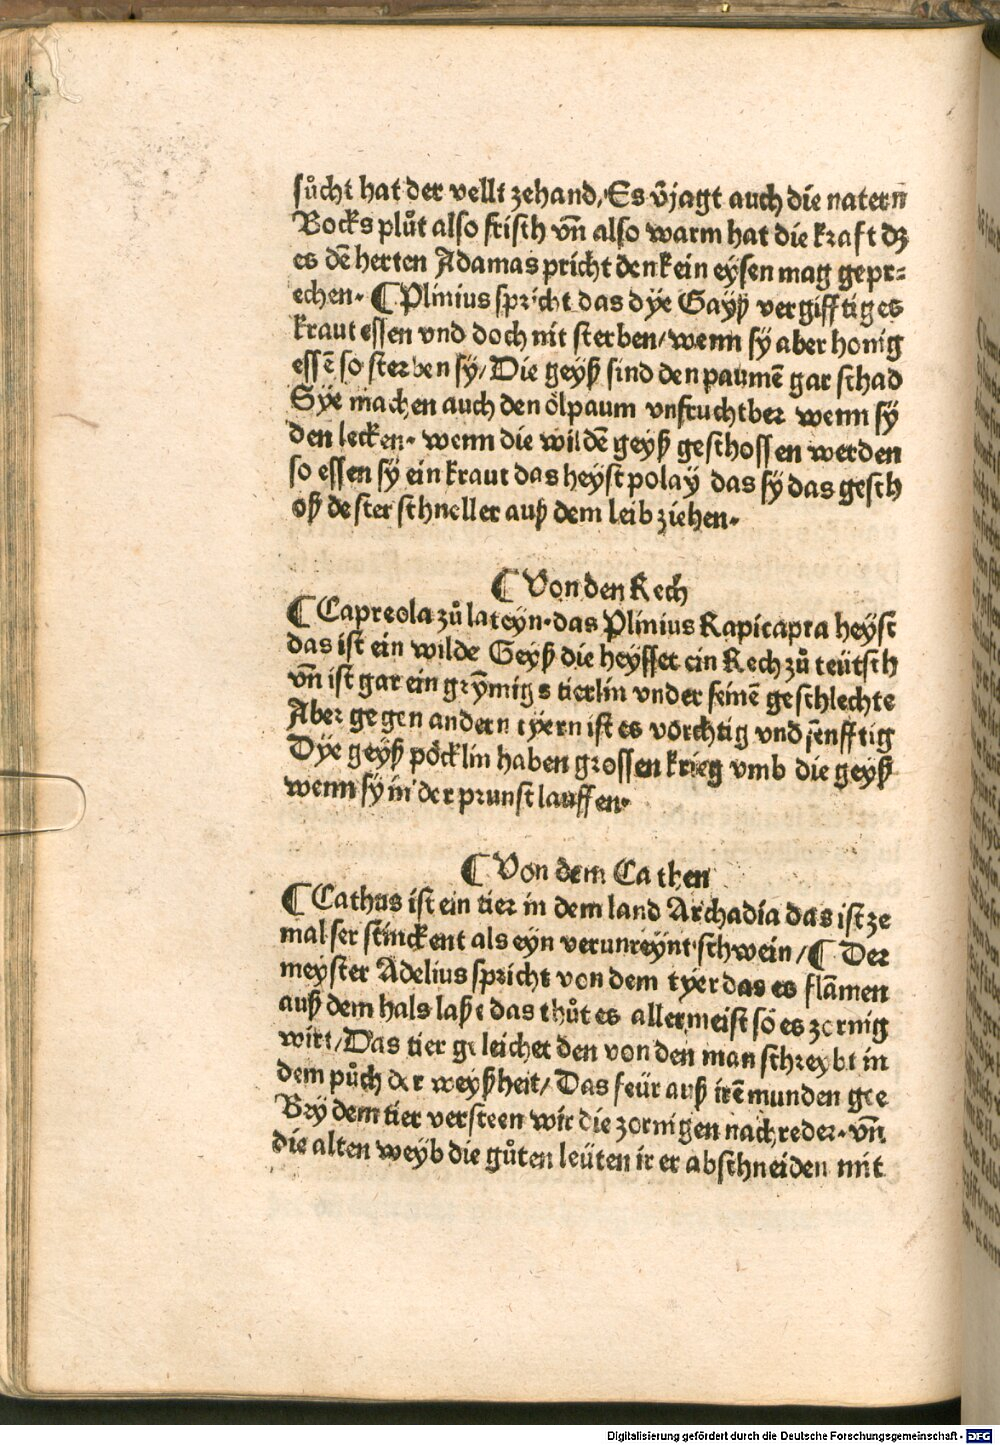 sůcht hat der vellt zehand/Es v̄jagt auch die natern
Bocks plůt also frisch vn̄ also warm hat die kraft dz
es dē herten Adamas pricht den kein eysen mag gepr=
echen. ¶ Plinius spricht das dÿe Gayß vergifftiges
kraut essen vnd doch nit sterben/wenn sÿ aber honig
essē so sterben sÿ/Die geyß sind den paumē gar schad
Sÿe machen auch den ölpaum vnfruchtber wenn sÿ
den lecken. wenn die wildē geyß geschossen werden
so essen sÿ ein kraut das heyst polaÿ das sÿ das gesch
oß dester schneller auß dem leib ziehen.
¶ Von den Rech
¶ Capreola zů lateyn.das Plinius Rapicapra heyst
das ist ein wilde Geyß die heysset ein Rech zů teütsch
vn̄ ist gar ein grȳmigs tierlin vnder seinē geschlechte
Aber gegen andern tÿern ist es vorchtig vnd senfftig
Dÿe geyß pöcklin haben grossen krieg vmb die geyß
wenn sÿ in der prunst lauffen.
¶ Von dem Cathen
¶ Cathus ist ein tier in dem land Archadia das ist ze
mal ser stinckent als eyn verunreÿnt schwein/¶ Der
meyster Adelius spricht von dem tyer das es flāmen
auß dem hals laßt das thůt es allermeist so es zornig
wirt/Das tier geleichet den von den man schreybt in
dem půch der weyßheit/Das feür auß irē munden gee
Beÿ dem tier versteen wir die zornigen nachreder.vn̄
die alten weyb die gůten leüten ir er abschneiden mit
Digitalisierung gefördert durch die Deutsche Forschungsgemeinschaft - DFG